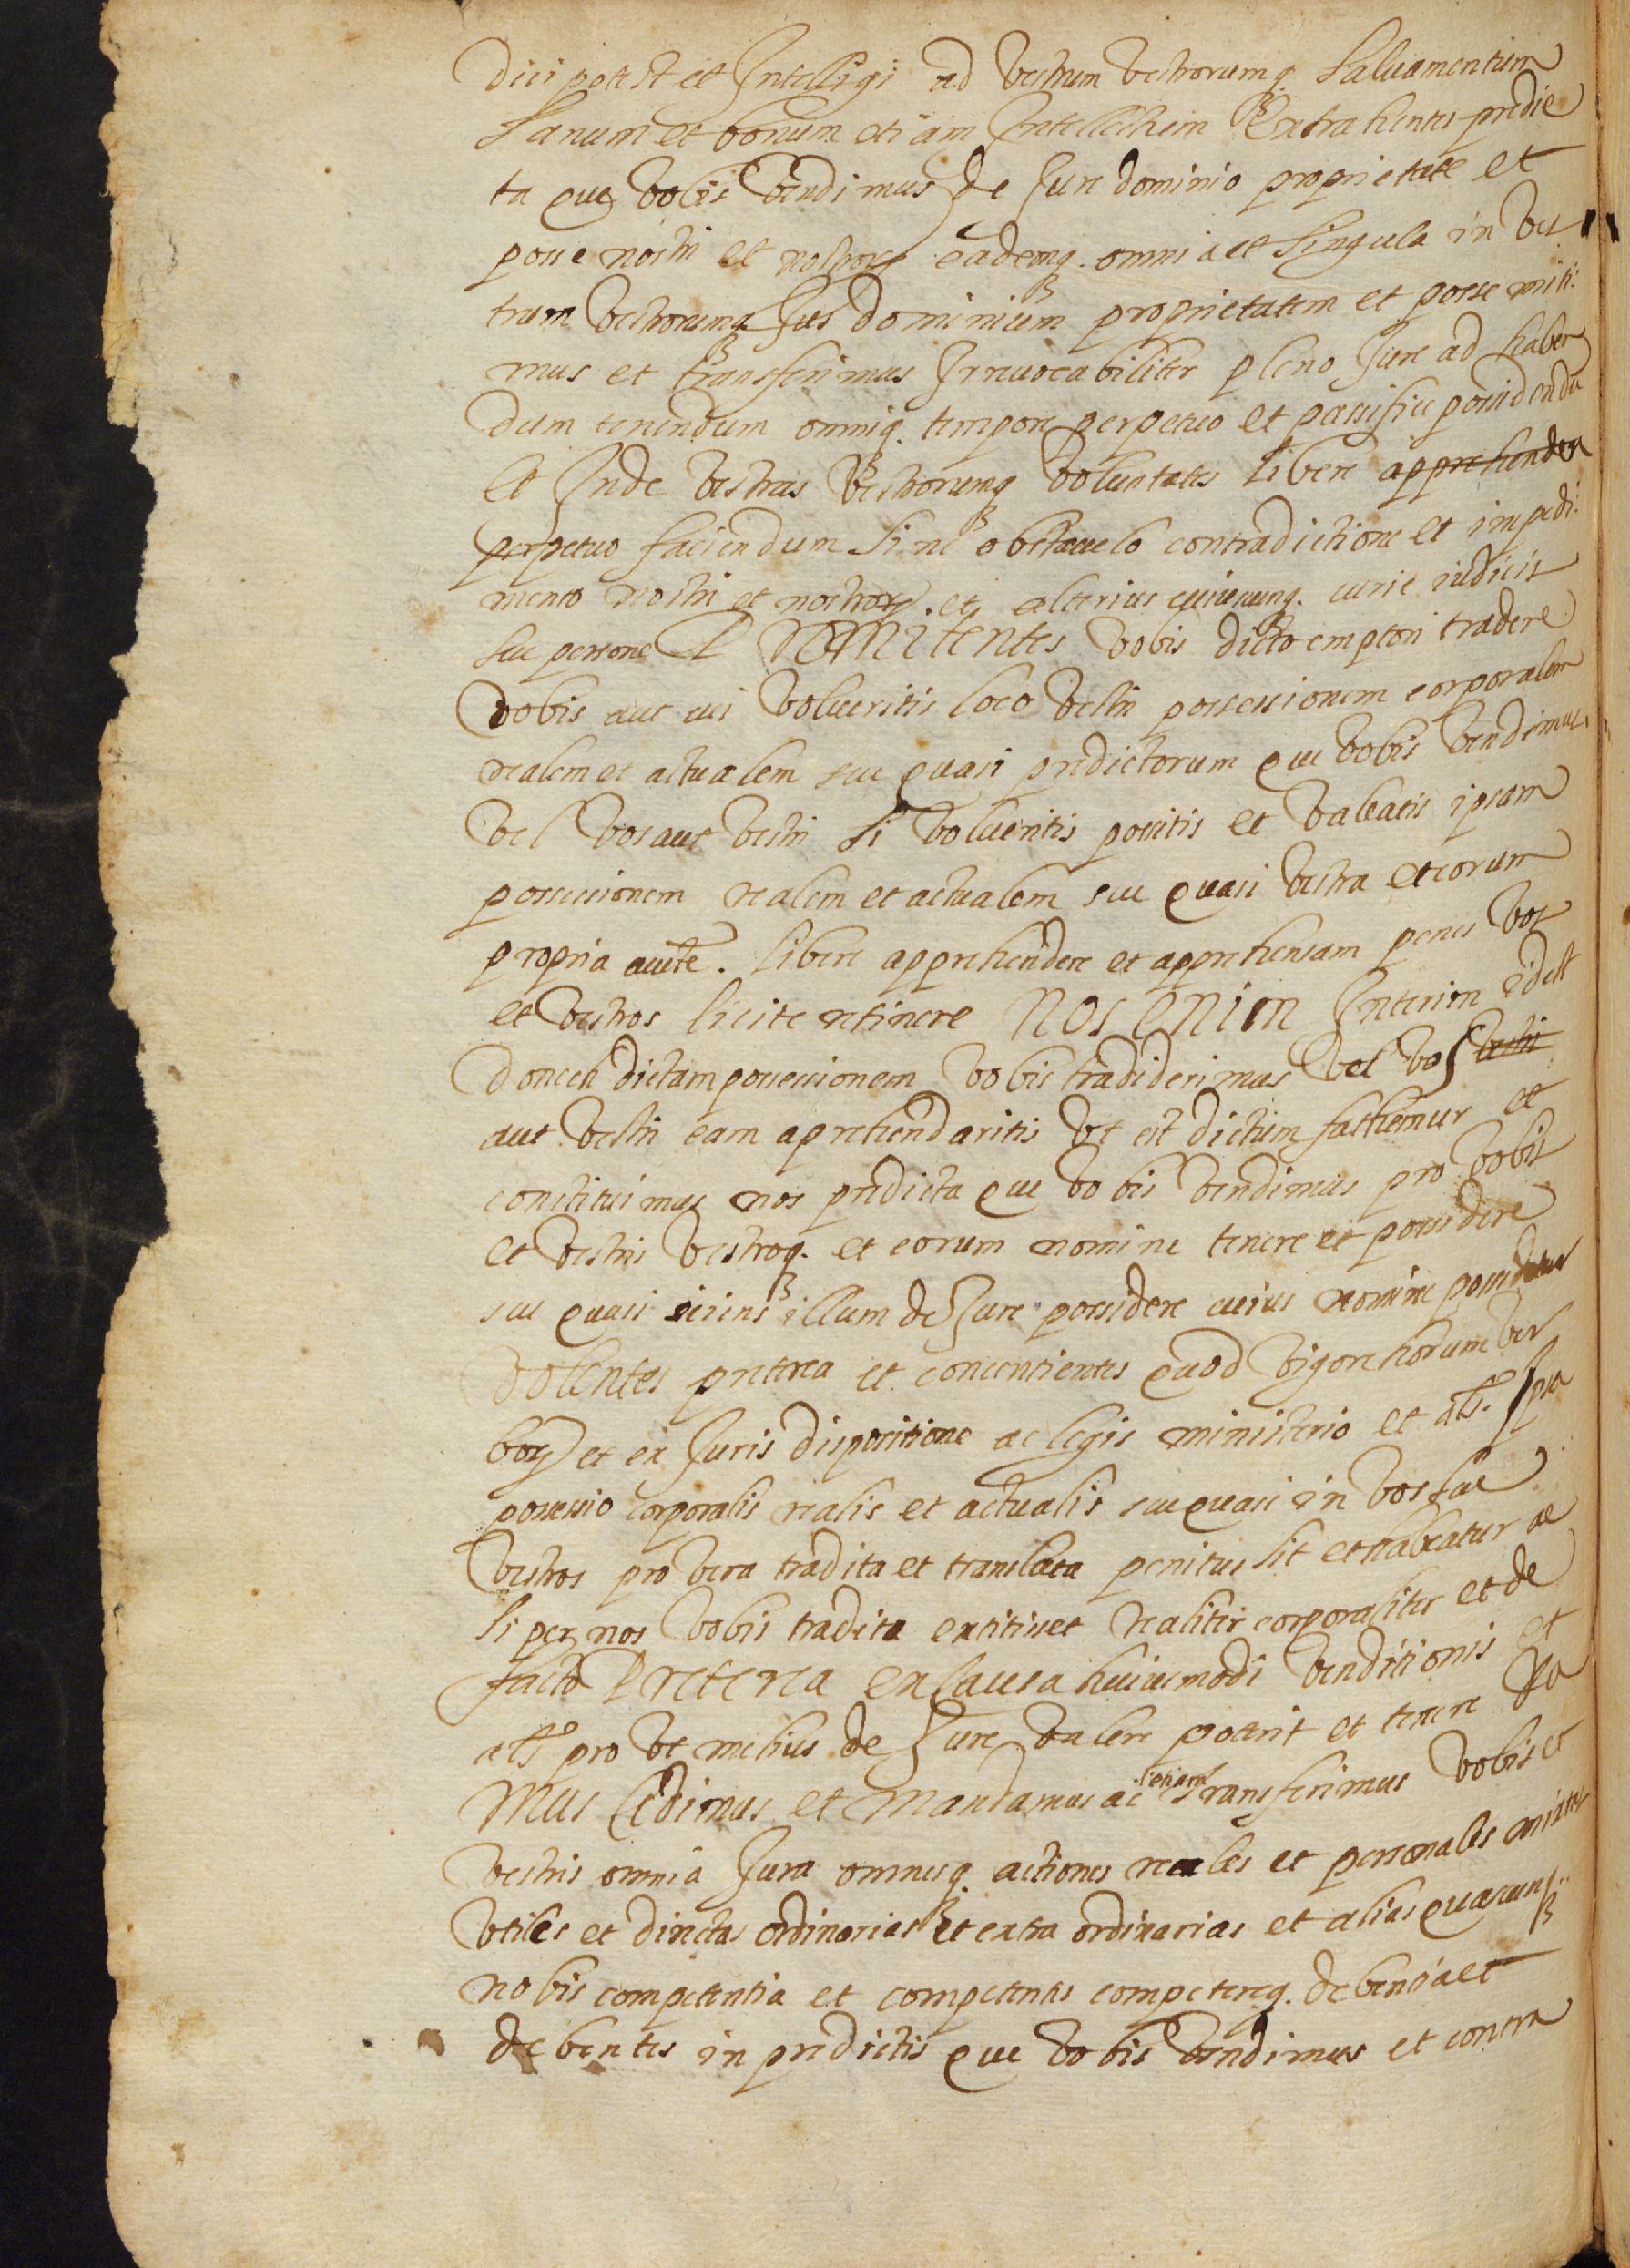 dici potest et Intelligi ad vestrum vestrorumq. salvamentum
sanum et bonum etiam Intellectum Extrahentes predic
ta que vobis vendimus de Jure dominio proprietate et
posse nostri et nostror eademq. omnia et singula in ves
trum vestrorumq Jus dominium proprietatem et posse miti:
mus et transferimus Irrevocabiliter pleno Jure ad haben
dum tenendum omniq. tempore perpetuo et passifice possidendu
et Inde vestras vestrorumq voluntates libere apprehendere
perpetuo faciendum sine obstaculo contradictione et impedi:
mento nostri et nostror. et alterius cuiuscunq. curie iudicis
seu persone PROMITENTES vobis dicto emptori tradere
vobis aut cui volueritis loco vestri possessionem corporalem
realem et actualem seu quasi predictorum que vobis vendimus
vel vos aut vestri si volueritis positis et valeatis ipsam
possessionem realem et actualem seu quasi vestra et eorum
propria aucte. libere apprehendere et apprehensam penes vos
et vestros licite retinere NOS ENIM Interim idest
donech dictam possessionem vobis tradiderimus vel vos vestri
aut vestri eam aprehendaritis vt est dictum fathemur et
constituimus nos predicta que vobis vendimus pro vobis
et vestris vestroq. et eorum nomine tenere et possidere
seu quasi sciens illum de Jure possidere cuius nomine possidetur
VOLENTES preterea et concentientes quod vigore horum ver
bor et ex Juris dispositione ac legis ministerio et als. Ipsa
possessio corporalis realis et actualis seu quasi in vos seu
vestros pro vera tradita et translata penitus sit et habeatur ac
si per nos vobis tradita extitisset realiter corporaliter et de
facto PRETEREA ex causa huiusmodi venditionis et
als pro vt melius de Jure valere poterit et tenere Da
mus Cedimus et Mandamus ac etiam transferimus vobis et
vestris omnia Jura omnesq. actiones reales et personales mixtas
vtiles et directas ordinarias et extra ordinarias et alias quascunq..
nobis competentia et competentes competereq. debentia et
debentes in predictis que vobis vendimus et contra